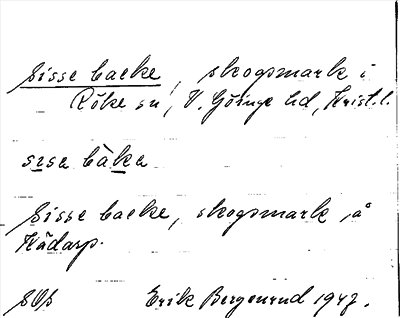 Sisse backe, skogsmark i
Röke sn, V. Göinge hd, Krist. l.
sisa bàka
Sisse backe, skogsmark å
Kädarp.
Erik Bergenrud 1947.